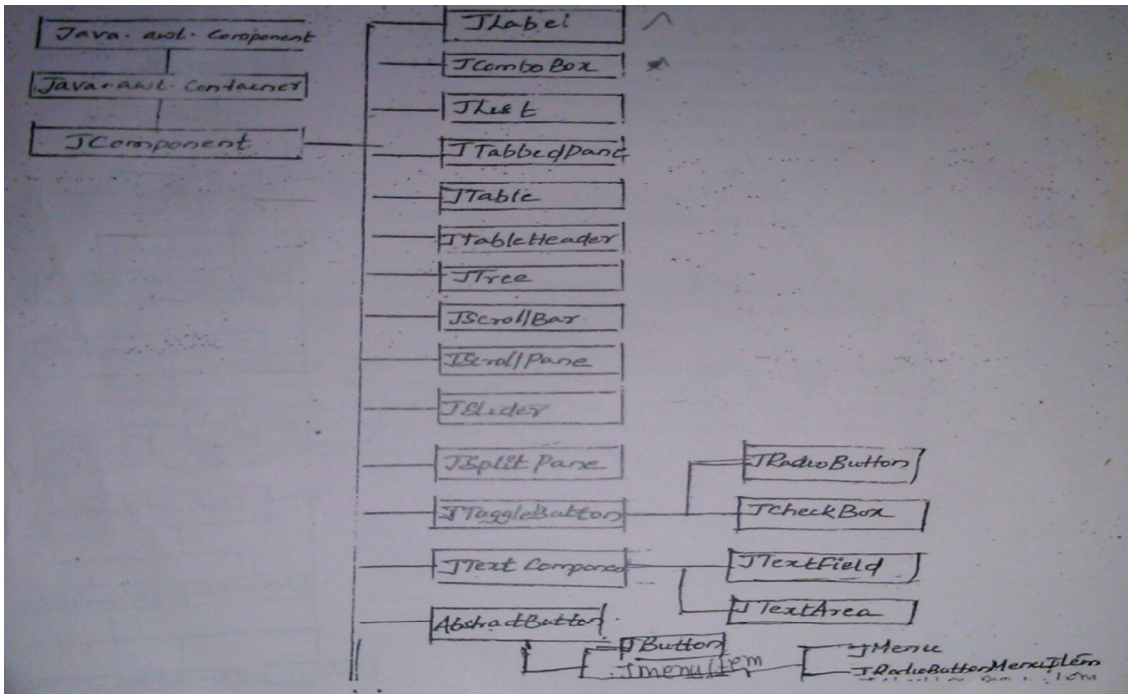 Java.awt.Component
Java.awt.Container
JComponent
JLabel
JComboBox
JList
JTabbedPane
JTable
JTableHeader
JTree
JScrollBar
JScrollPane
JSlider
JSplit Pane
JToggleButton
JRadioButton
JCheckBox
JText Componen
JTextField
JTextArea
AbstractButton
JButton
JmenuItem
JMenu
JRadioButtonMenuItem